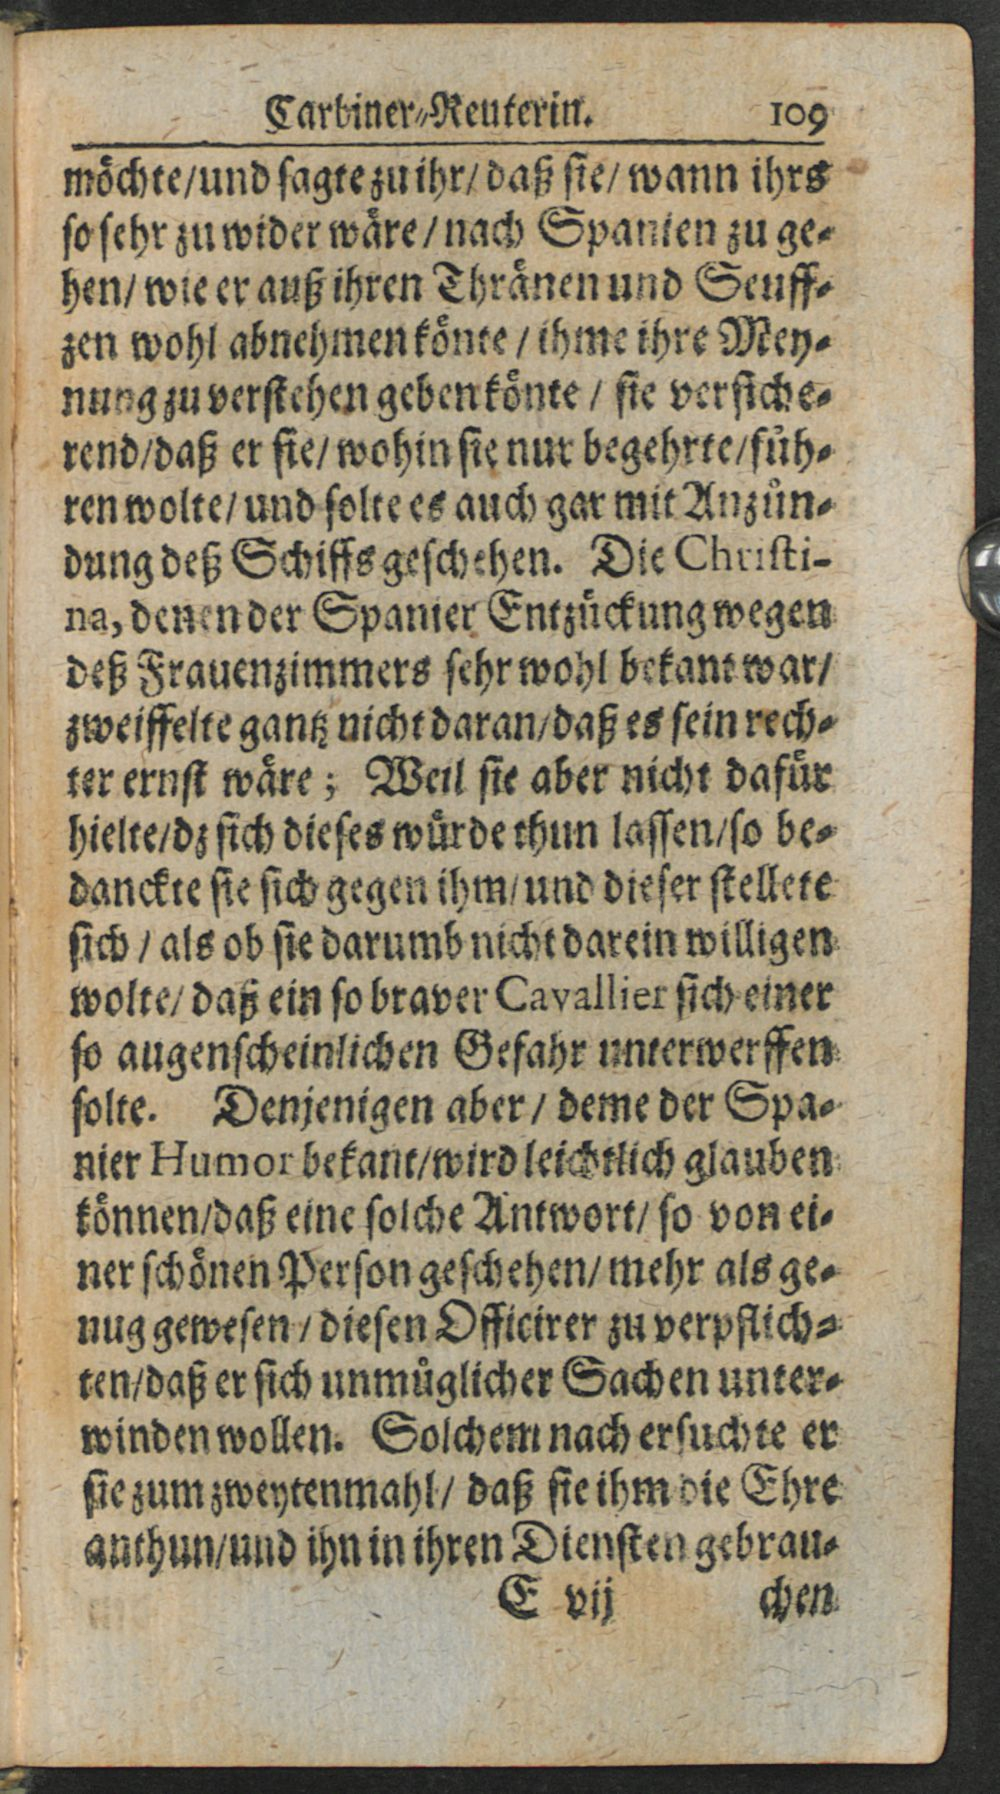 Carbiner-Reuterin. 109
möchte/und sagte zu ihr/ daß sie/ wann ihrs
so sehr zu wider wäre / nach Spanien zu ge-
hen/ wie er auß ihren Thränen und Seuff-
zen wohl abnehmen könte / ihme ihre Mey-
nung zu verstehen geben könte / sie versiche-
rend/daß er sie/ wohin sie nur begehrte/füh-
ren wolte/ und solte es auch gar mit Anzün-
dung deß Schiffs geschehen. Die Christi-
na, denen der Spanier Entzückung wegen
deß Frauenzimmers sehr wohl bekant war/
zweiffelte gantz nicht daran/daß es sein rech-
ter ernst wäre; Weil sie aber nicht dafür
hielte/dz sich dieses würde thun lassen/so be-
danckte sie sich gegen ihm/ und dieser stellete
sich / als ob sie darumb nicht darein willigen
wolte/ daß ein so braver Cavallier sich einer
so augenscheinlichen Gefahr unterwerffen
solte. Denjenigen aber / deme der Spa-
nier Humor bekant/wird leichtlich glauben
können/daß eine solche Antwort/ so von ei-
ner schönen Person geschehen/ mehr als ge-
nug gewesen / diesen Officirer zu verpflich-
ten/daß er sich unmüglicher Sachen unter-
winden wollen. Solchem nach ersuchte er
sie zum zweytenmahl / daß sie ihm die Ehre
anthun/und ihn in ihren Diensten gebrau-
E vij chen